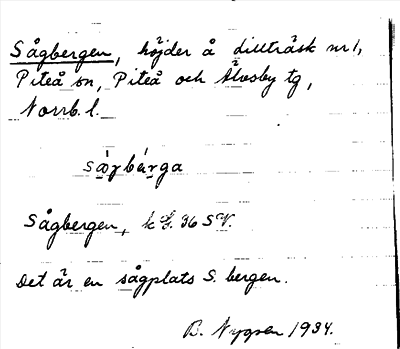 Sågbergen, höjder å Lillträsk nr 1,
Piteå sn, Piteå och Älvsby tg,
Norrb. l.
Sågbergen, k 36 SV.
Det är en sågplats S. bergen.
B. Nygren 1934.